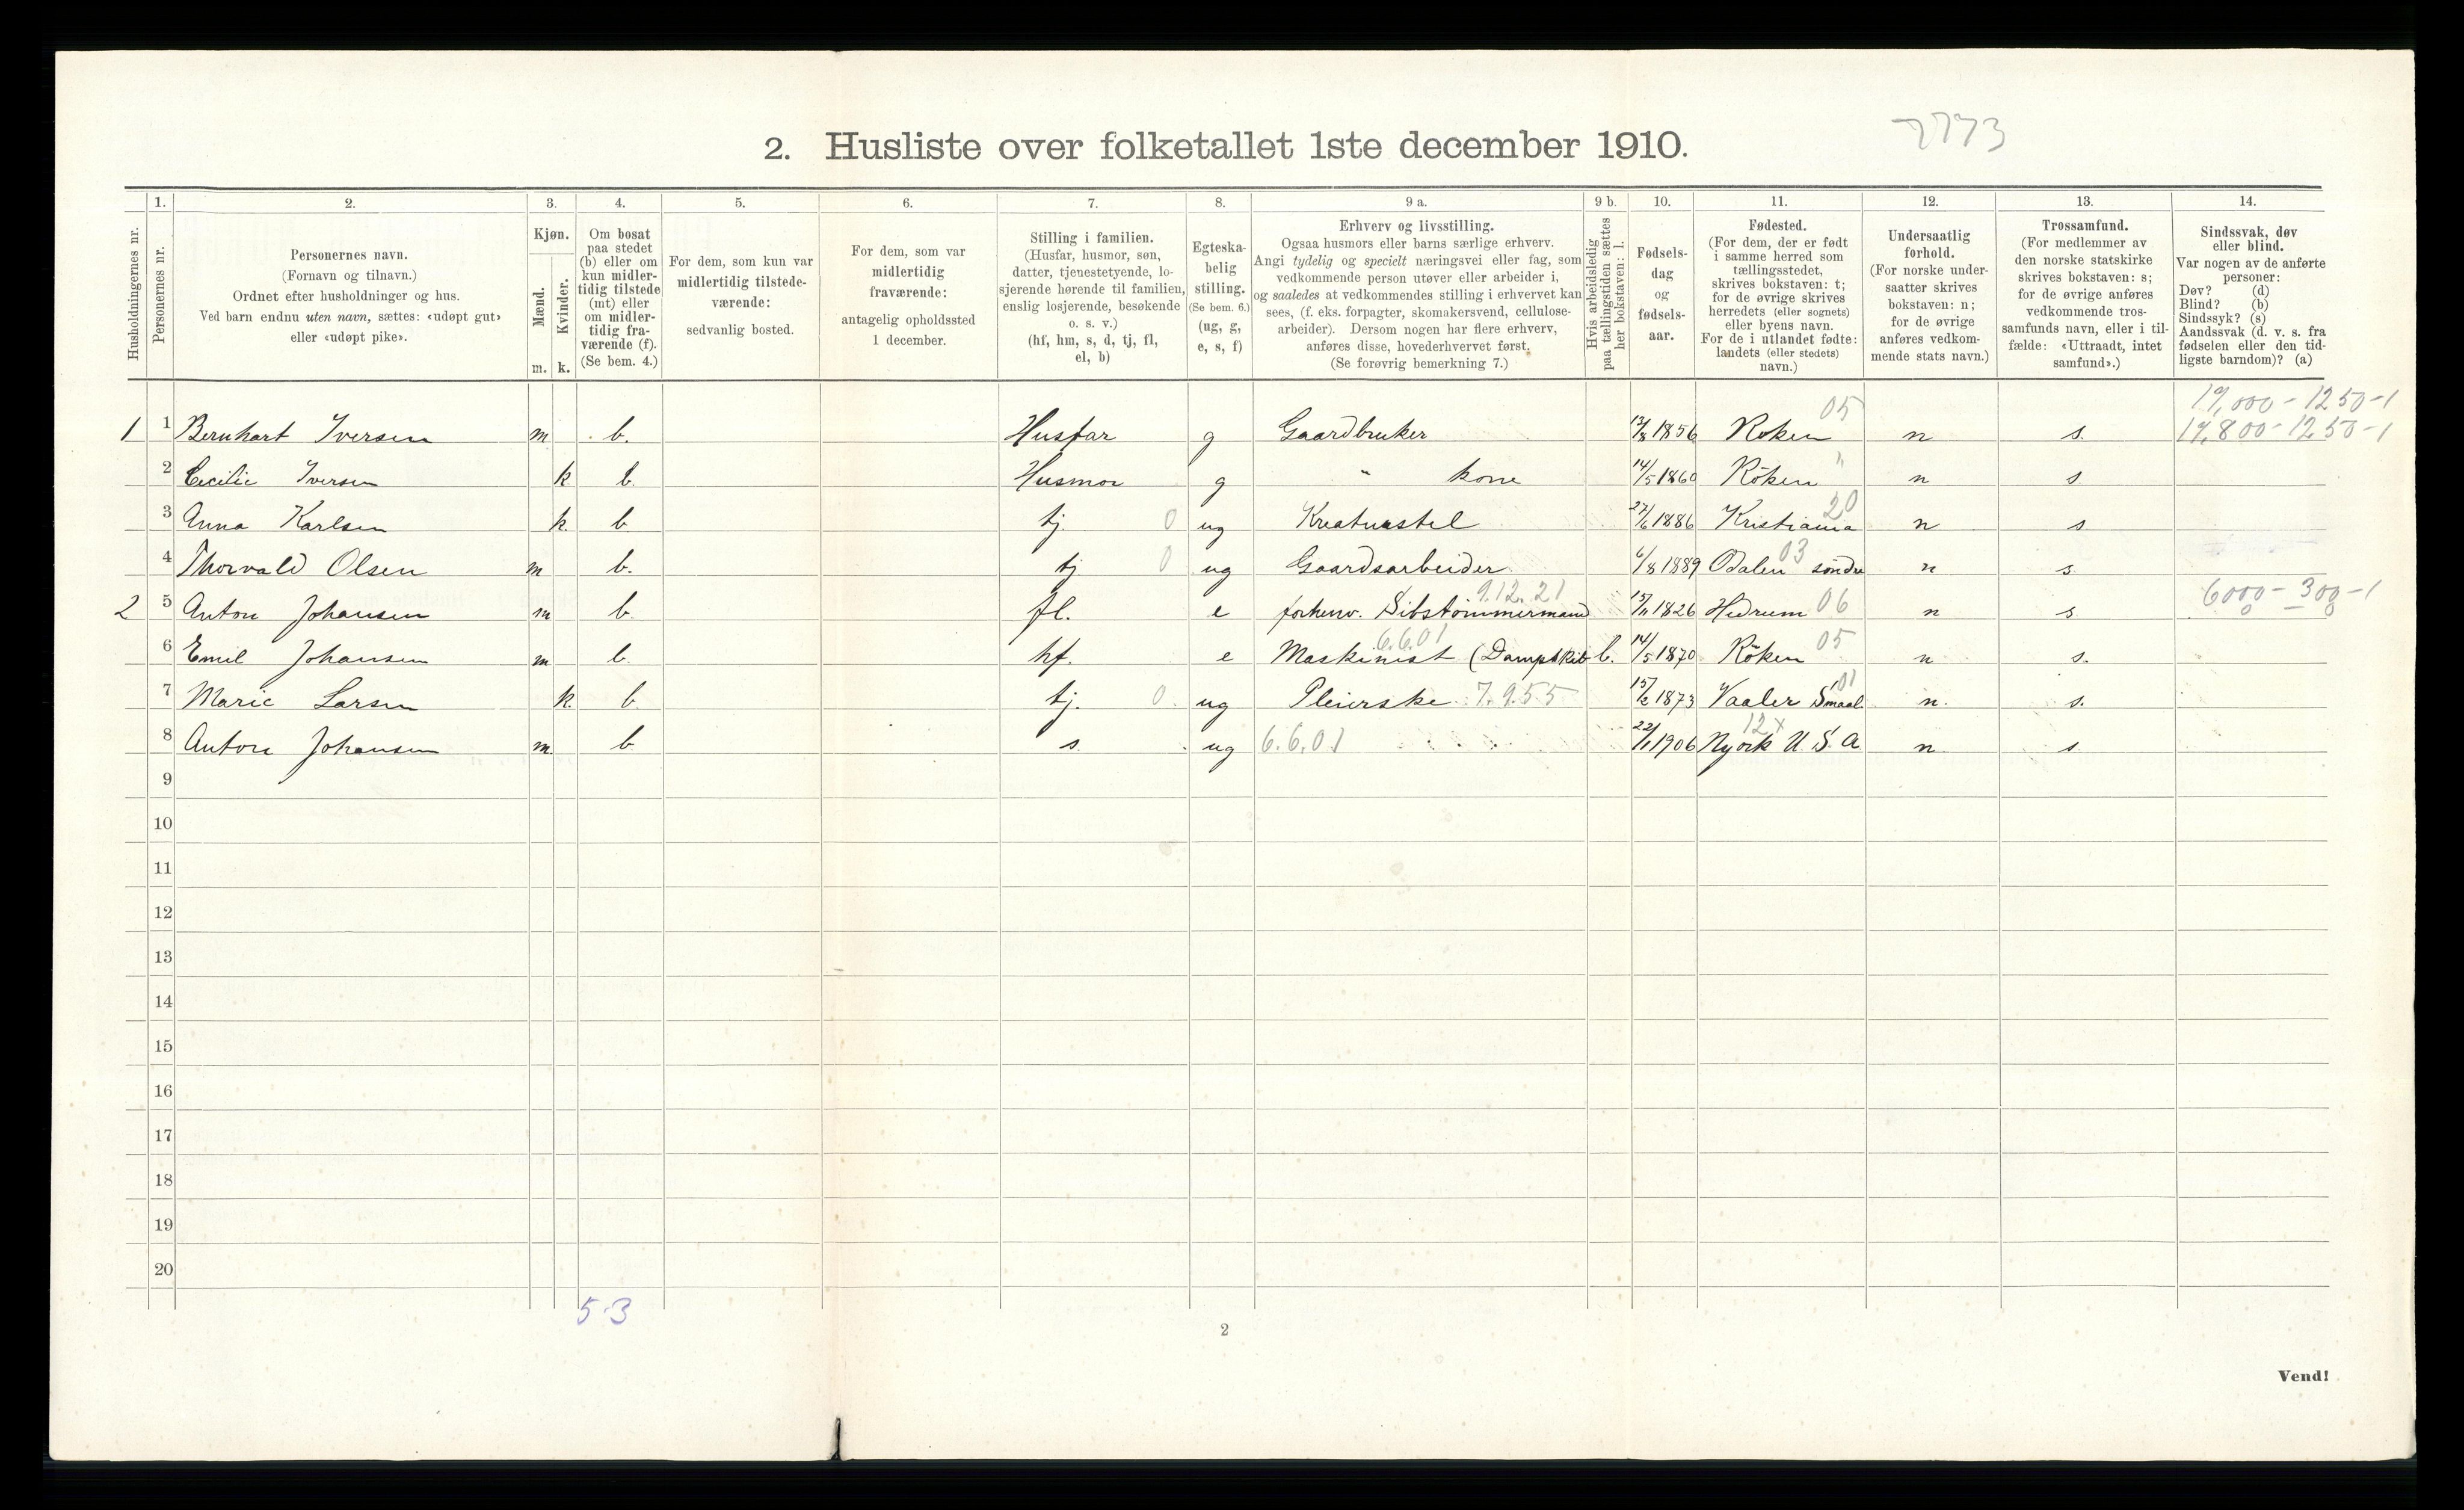 2. Husliste over folketallet 1ste december 1910.
7773
Husholdningernes nr.
1.
Personernes nr.
2.
Personernes navn.
(Fornavn og tilnavn.)
Ordnet efter husholdninger og hus.
Ved barn endnu uten navn, sættes: «udøpt gut»
eller «udøpt pike».
3.
Kjøn.
Mænd.
Kvinder.
m. k.
4.
Om bosat
paa stedet
(b) eller om
kun midler-
tidig tilstede
(mt) eller
om midler-
tidig fra-
værende (f).
(Se bem. 4.)
5.
For dem, som kun var
midlertidig tilstede-
værende:
sedvanlig bosted.
6.
For dem, som var
midlertidig
fraværende:
antagelig opholdssted
1 december.
7.
Stilling i familien.
(Husfar, husmor, søn,
datter, tjenestetyende, lo-
sjerende hørende til familien,
enslig losjerende, besøkende
o. s. v.)
(hf, hm, s, d, tj, fl,
el, b)
8.
Egteska-
belig
stilling.
(Se bem. 6.)
(ug, g,
e, s, f)
9 a.
Erhverv og livsstilling.
Ogsaa husmors eller barns særlige erhverv.
Angi tydelig og specielt næringsvei eller fag, som
vedkommende person utøver eller arbeider i,
og saaledes at vedkommendes stilling i erhvervet kan
sees, (f. eks. forpagter, skomakersvend, cellulose-
arbeider). Dersom nogen har flere erhverv,
anføres disse, hovederhvervet først.
(Se forøvrig bemerkning 7.)
9 b.
Hvis arbeidsledig
paa tællingstiden sættes
her bokstaven: l.
10.
Fødsels-
dag
og
fødsels-
aar.
11.
Fødested.
(For dem, der er født
i samme herred som
tællingsstedet,
skrives bokstaven: t;
for de øvrige skrives
herredets (eller sognets)
eller byens navn.
For de i utlandet fødte:
landets (eller stedets)
navn.)
12.
Undersaatlig
forhold.
(For norske under-
saatter skrives
bokstaven: n;
for de øvrige
anføres vedkom-
mende stats navn.)
13.
Trossamfund.
(For medlemmer av
den norske statskirke
skrives bokstaven: s;
for de øvrige anføres
vedkommende tros-
samfunds navn, eller i til-
fælde: «Uttraadt, intet
samfund».)
14.
Sindssvak, døv
eller blind.
Var nogen av de anførte
personer:
Døv? (d)
Blind? (b)
Sindssyk? (s)
Aandssvak (d. v. s. fra
fødselen eller den tid-
ligste barndom)? (a)
05 19,000 - 1250-1
1 1 Bernhart Iversen m b. Husfar g Gaardbruker 1856 Roken n s. 17,800 - 1250-1
2 Cecilie Iversen k b. Husmor g " kone 14/5 1860 Röken " n s
3 Anna Karlsen k. b tj. 0 ug Kreaturstel 27/6 1886 Kristiania 20 n s
4 Thorvald Olsen m b. tj 0 ug Gaardsarbeider 6/8 1889 Odalen söndre 03 n s
9.12.21 6000 - 300 - 1
2 5 Anton Johansen m b. fl. e forhenv. Sibstömmermand 1826 Hedrum 06 n s 0 - 0
6.6.01
6 Emil Johansen m b. hf. e Maskinist (Dampskib l. 14/5 1870 Röken 05 n s.
7 Marie Larsen k. b tj. 0 ug Pleierske 7.9.55 15/2 1873 Vaaler Smaal. 01 n. s.
8 Anton Johansen m b s. ug 6.6.01 22/1 1906 Nyork U.S.A 12x n s
9
10
11
12
13
14
15
16
17
18
19
20
5-3
2
Vend!